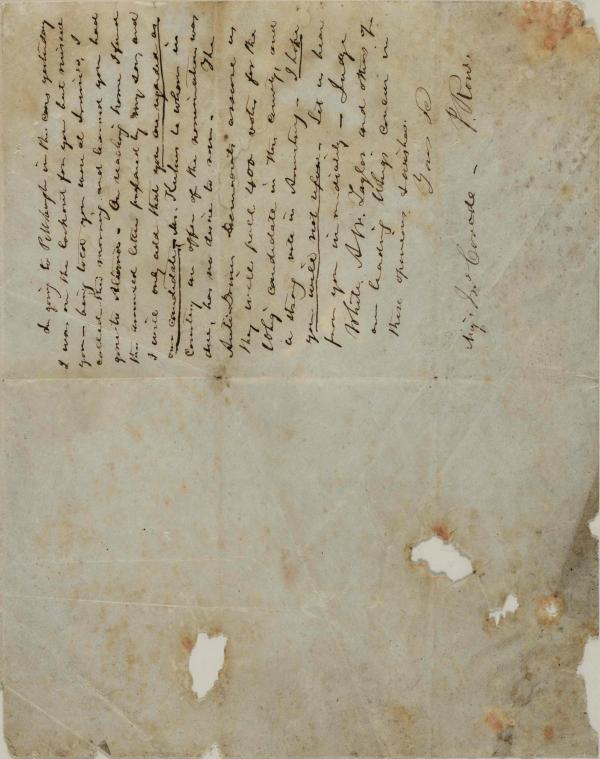 In going to Pittsburgh in the cars yesterday
I was on the lookout for you but missed
you — being told you were at I
called this morning and learned you had
gone to — On reaching home I find
the annexed letter prepared by my son, and
I will only add that you are regarded as
our candidate. Mr. to whom in
Country an offer of the nomination was
due, has no desire to run — The
Democrats assure us
they will poll 400 votes for the
Whig candidate in this county, and
a strong vote in — I hope
you will not refuse. Let us hear
from you immediately — Judge
White, Taylor and others of
our leading Whigs concur in
these opinions & wishes.
Yours &c
P. Row.
Covode —